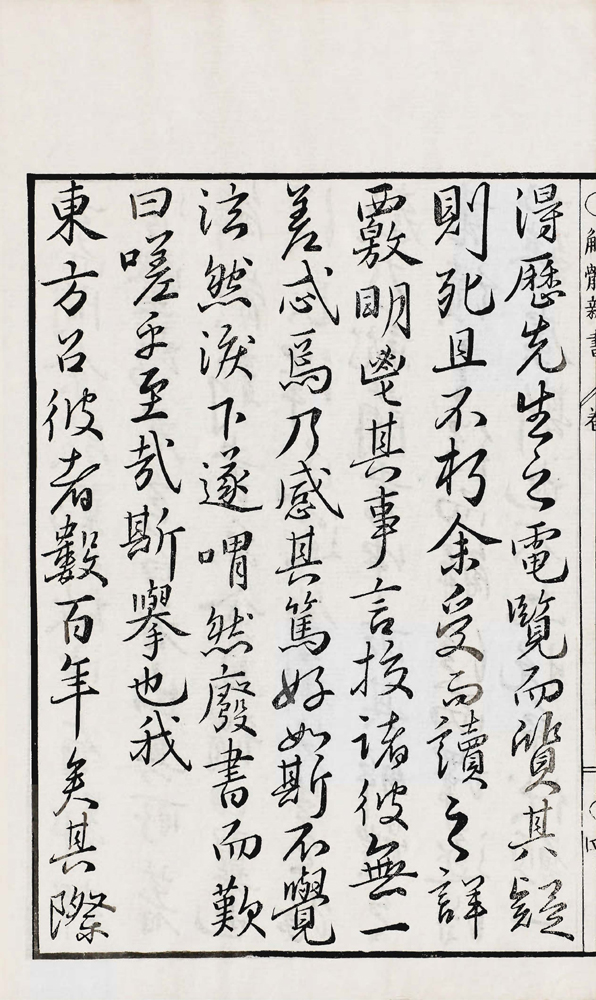 解體新書
得歷先生之電覽而質其疑
則死且不朽余受而讀之詳
覈明鬯其事言挍諸彼無一
差忒焉乃感其篤好如斯不覺
泫然淚下遂喟然廢書而歎
曰嗟乎至哉斯擧也我
東方召彼者數百年矣其際